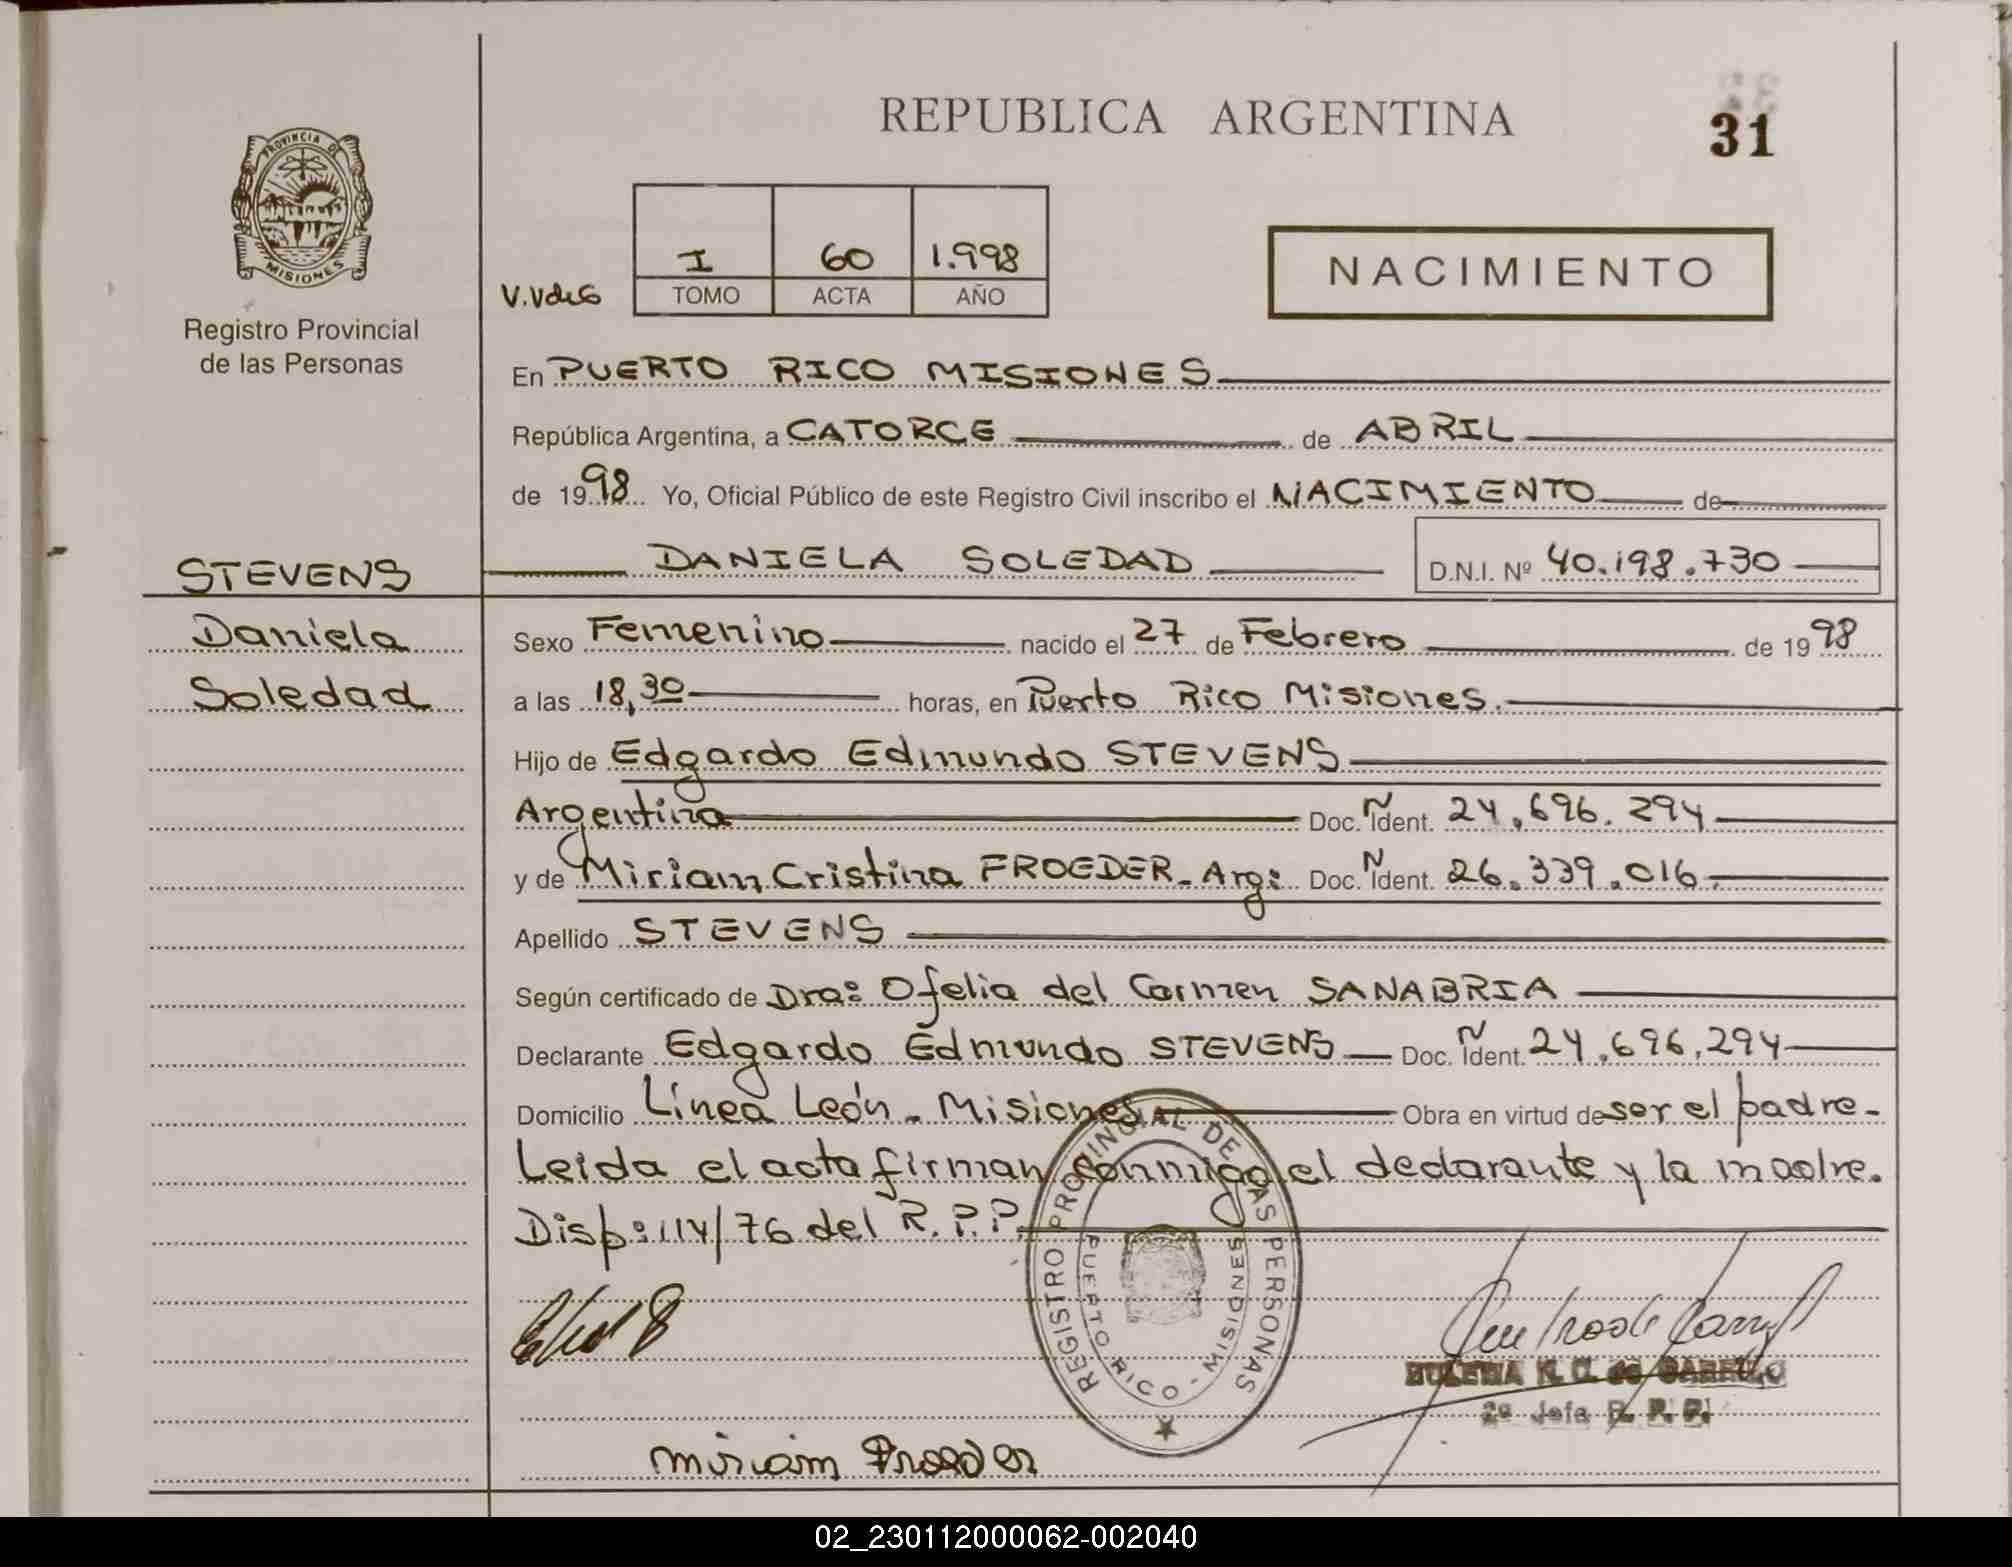 REPUBLICA ARGENTINA
31
PROVINCIA DE
MISIONES
Registro Provincial
de las Personas
I 60 1.998
TOMO ACTA AÑO
NACIMIENTO
En PUERTO RICO MISIONES
República Argentina, a CATORCE de ABRIL
de 1998 Yo, Oficial Público de este Registro Civil inscribo el NACIMIENTO de
STEVENS
Daniela
Soledad
DANIELA SOLEDAD D.N.I. Nº 40.198.730
Sexo Femenino nacido el 27 de Febrero de 1998
a las 18,30 horas, en Puerto Rico Misiones.
Hijo de Edgardo Edmundo STEVENS
Argentina Doc. Ident. N 24.696.294
y de Miriam Cristina FROEDER - Arg: Doc. Ident. N 26.339.016.
Apellido STEVENS
Según certificado de Dra: Ofelia del Carmen SANABRIA
Declarante Edgardo Edmundo STEVENS Doc. Ident. N 24.696.294
Domicilio Línea León - Misiones Obra en virtud de ser el padre -
Leida el acta firman conmigo el declarante y la madre.
Disp: 114/76 del R.P.P.
REGISTRO PROVINCIAL DE LAS PERSONAS
PUERTO RICO - MISIONES
2º Jefa R. P. P.
Miriam Froeder
02_230112000062-002040